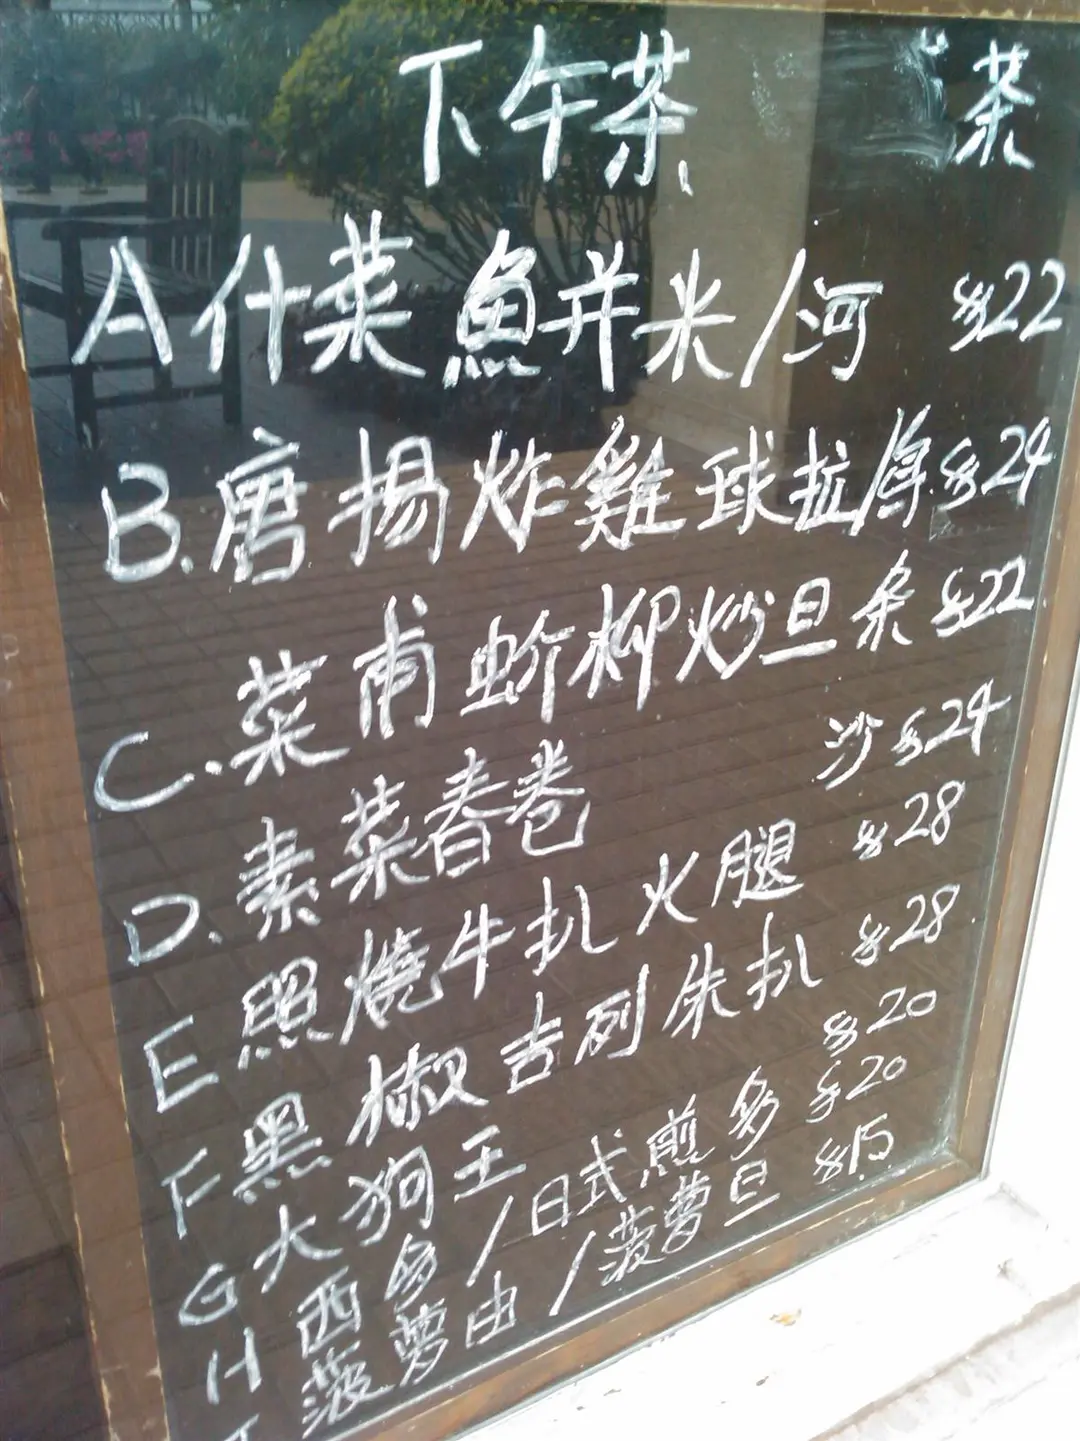 下午茶 茶
A 什菜魚并米/河 $22
B. 唐揚炸雞球拉 $24
C. 菜甫蚧柳炒旦 $22
D. 素菜春卷 沙 $24
E 照燒牛扒火腿 $28
F 黑椒吉列朱扒 $28
G 大狗王 $20
H 西多/日式煎多 $20
菠萝由/菠萝旦 $15